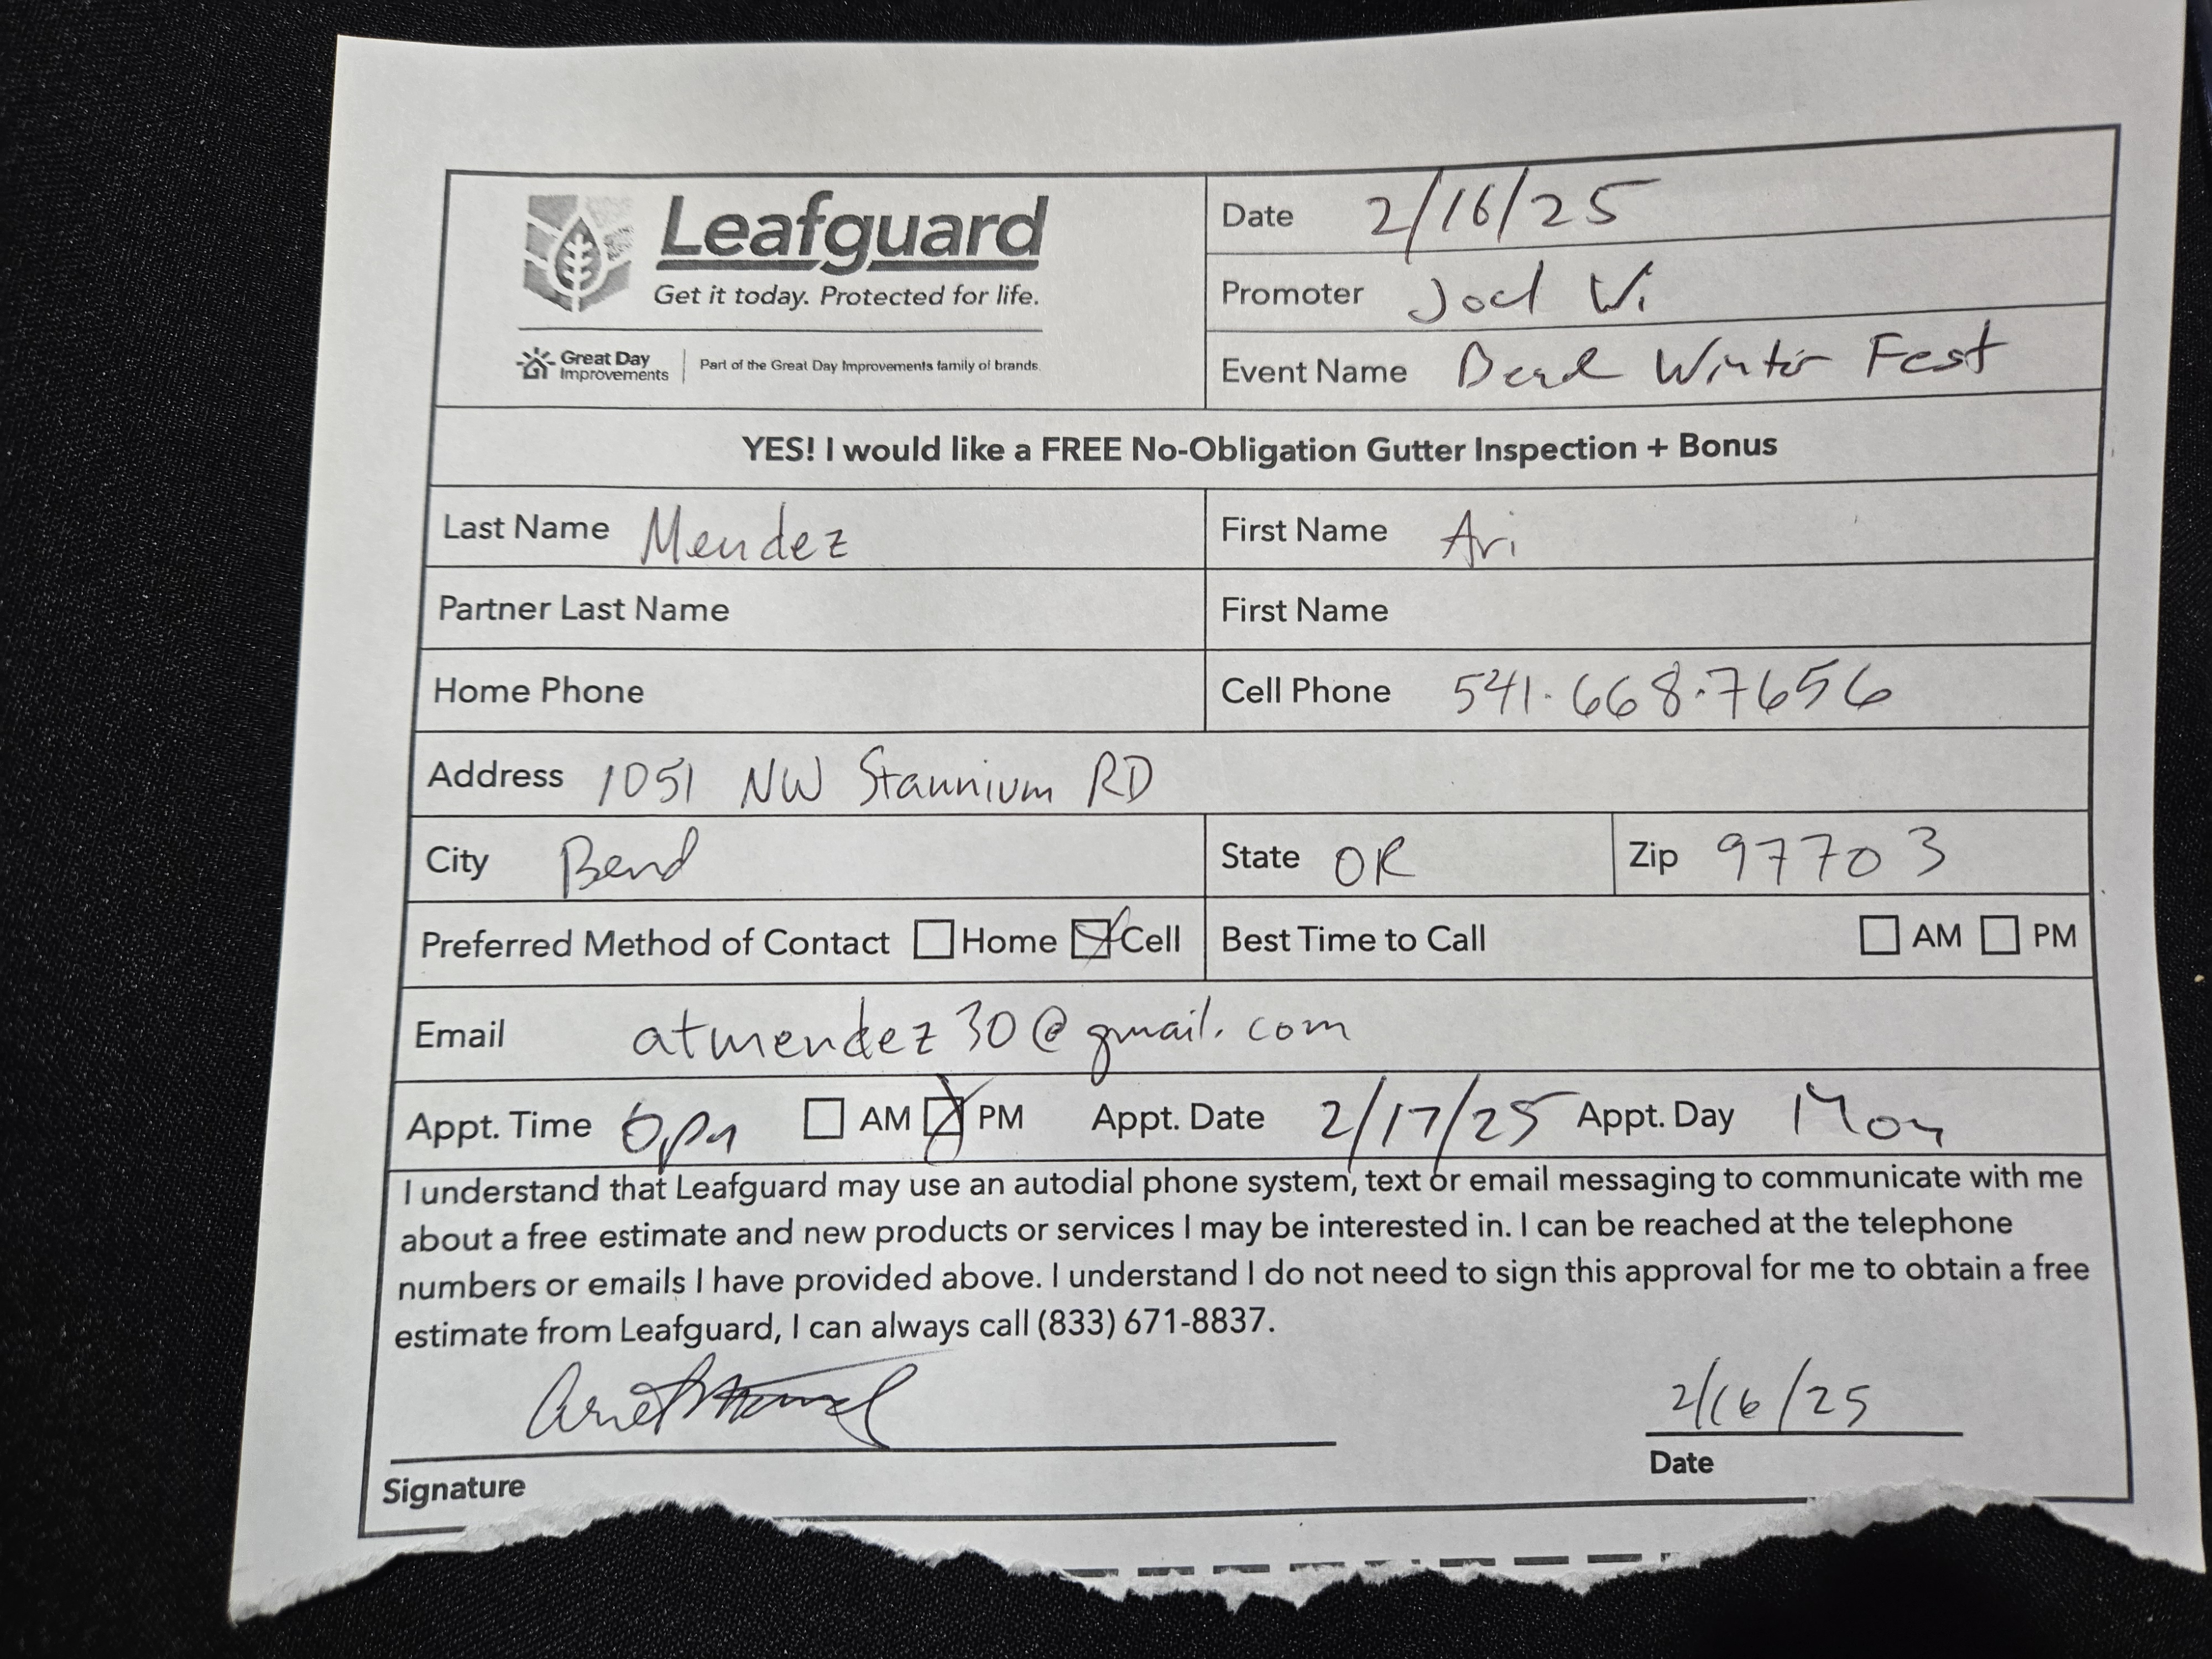 Leafguard
Get it today. Protected for life.
Great Day Improvements | Part of the Great Day Improvements family of brands.
Date 2/16/25
Promoter Joel W.
Event Name Bend Winter Fest
YES! I would like a FREE No-Obligation Gutter Inspection + Bonus
Last Name Mendez First Name Ari
Partner Last Name First Name
Home Phone Cell Phone 541.668.7656
Address 1051 NW Stannium RD
City Bend State OR Zip 97703
Preferred Method of Contact Home Cell Best Time to Call AM PM
Email atmendez30@gmail.com
Appt. Time 6pm AM PM Appt. Date 2/17/25 Appt. Day Mon
I understand that Leafguard may use an autodial phone system, text or email messaging to communicate with me
about a free estimate and new products or services I may be interested in. I can be reached at the telephone
numbers or emails I have provided above. I understand I do not need to sign this approval for me to obtain a free
estimate from Leafguard, I can always call (833) 671-8837.
2/16/25
Signature Date